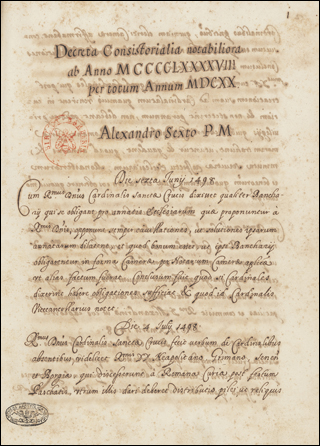 1
Decreta Consistorialia notabiliora
ab Anno MCCCCLXXXXVIII
per totum Annum MDXX
Alexandro Sexto P.M.
Die sexta Junij 1498.
Cum R.mus Dnus Cardinalis Sanctæ Crucis dixisset qualiter Bancha
rij qui se obligant pro annatis Ecclesiarum quæ proponuntur à
solutiones ipsarum
annatarum et quod bonum esset ut ipsi Bancharij
obligarentur in forma Cameræ
ut alias factum fuit. Conclusum fuit quod si Cardinalis
obligationes quod id Cardinalis
Vicecancellarius
Die 4 July 1498.
R.mus Dnus Cardinalis Sanctæ Crucis fecit verbum de Cardinalibus
absentibus videlicet Neapolitano, Grimano, Senen
et Borgia, qui discesserunt à Romana Curia post festum
Paschatis, utrum illis dari deberet distributio reliquis